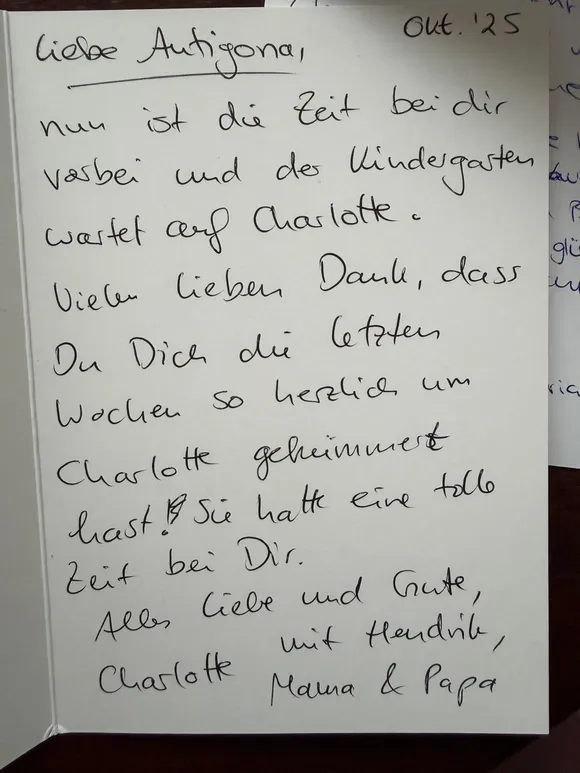 Okt. '25
Liebe Antigona,
nun ist die Zeit bei dir
vorbei und der Kindergarten
wartet auf Charlotte.
Vielen lieben Dank, dass
Du Dich die letzten
Wochen so herzlich um
Charlotte gekümmert
hast! Sie hatte eine tolle
Zeit bei Dir.
Alles Liebe und Gute,
Charlotte mit Hendrik,
Mama & Papa